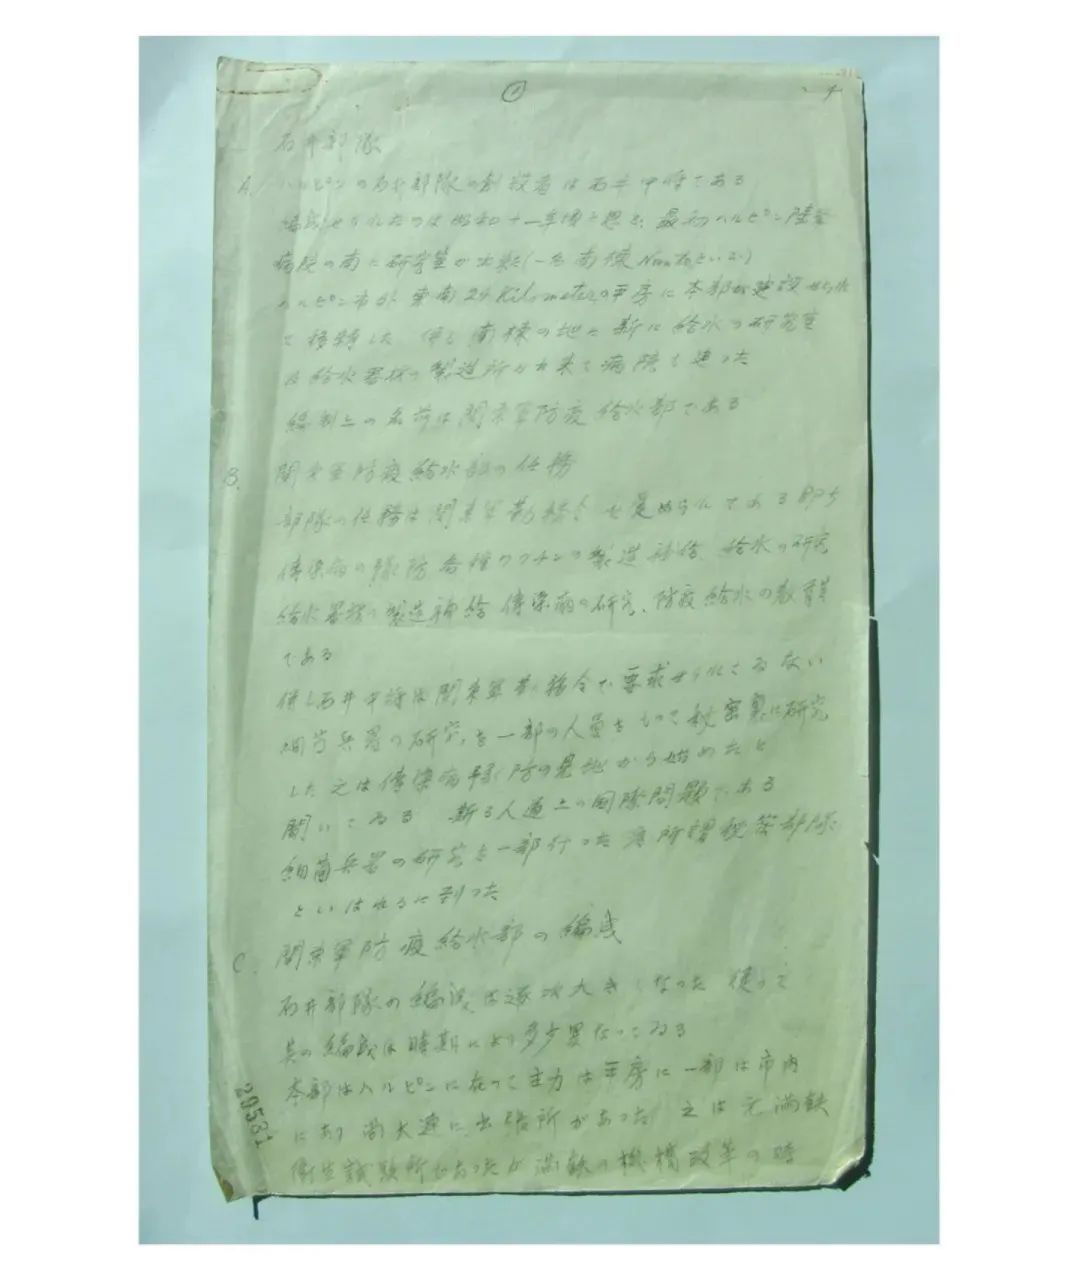 ①
石井部隊
A) ハルピンの石井部隊の創設者は石井中将である
編成せられたのは昭和十一年頃と思ふ、最初ハルピン陸軍
病院の南に研究室が出来た(一名南棟 といふ)
ハルピン市外東南24 Kilometerの平房に本部が建設せられ
て移転した 併し南棟の地に新に給水の研究室
及給水器材の製造所が出来て病院も建った
編制上の名前は関東軍防疫給水部である
B. 関東軍防疫給水部の任務
部隊の任務は関東軍勤務令で定められてある即ち
傳染病の豫防 各種ワクチンの製造補給、給水の研究
給水器材の製造補給 傳染病の研究、防疫給水の教育
である
併し石井中将は関東軍勤務令で要求せられてゐない
細菌兵器の研究を一部の人員をもって秘密裏に研究
した 之は傳染病豫防の見地から始めたと
聞いてゐる 斯る人道上の国際問題である
細菌兵器の研究を一部行った為所謂秘密部隊
といはれるに到った
C. 関東軍防疫給水部の編成
石井部隊の編成は逐次大きくなった 従って
其の編成は時期により多少異なってゐる
本部はハルピンに在って主力は平房に一部は市内
にあり 尚大連に出張所があった 之は元満鉄
衛生試験所であったが満鉄の機構改革の時
29531